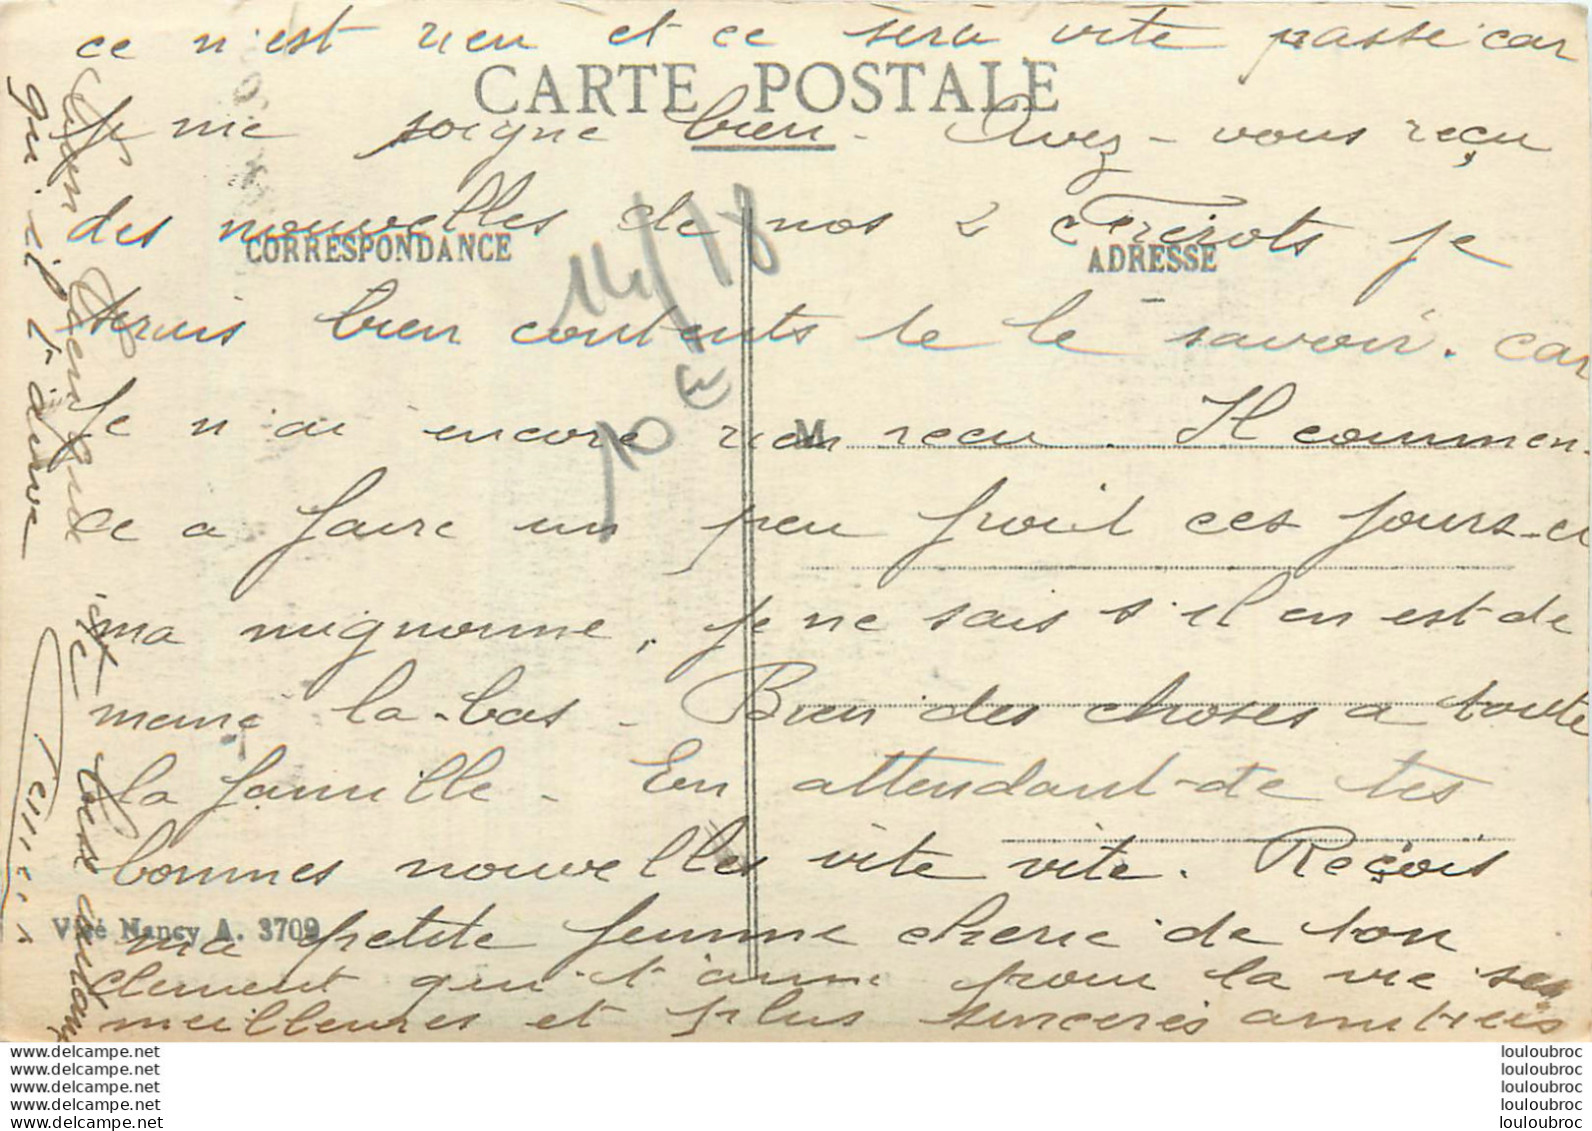 ce n'est rien et ce sera vite passé car
CARTE POSTALE
je me soigne bien - Avez-vous reçu
des nouvelles de nos 2 Frérots je
CORRESPONDANCE
ADRESSE
14/18
serais bien contents te le savoir. car
10€
je n'ai encore rien reçu. Il commen-
M
ce a faire un peu froid ces jours-ci
ma mignonne, je ne sais s'il en est de
meme la-bas - Bien des choses a toute
la famille - En attendant de tes
bonnes nouvelles vite vite. Reçois
ma petite femme cherie de ton
Visé Nancy A. 3709
clement qui t'aime pour la vie ses
meilleures et plus sinceres amities
qui t'aime
www.delcampe.net
www.delcampe.net
www.delcampe.net
www.delcampe.net
www.delcampe.net
louloubroc
louloubroc
louloubroc
louloubroc
louloubroc